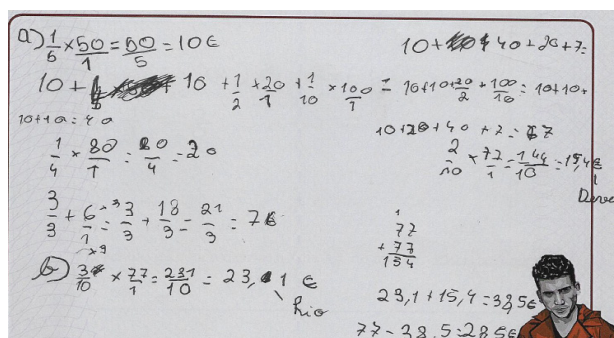 a) 1/5 × 50/1 = 50/5 = 10€
10 + 40 + 20 + 7 =
10 + 10 + 1/2 × 20/1 + 1/10 × 100/1 = 10 + 10 + 20/2 + 100/10 = 10 + 10 +
10 + 10 = 40
10 + 20 + 40 + 7 = 77
1/4 × 80/1 = 80/4 = 20
2/10 × 77/1 = 144/10 = 15,4€
3/3 + 6/1 = 3/3 + 18/3 = 21/3 = 7€
×3
×3
1
77
+ 77
154
b) 3/10 × 77/1 = 231/10 = 23,1 €
23,1 + 15,4 = 38,5€
77 - 38,5 = 28,5€